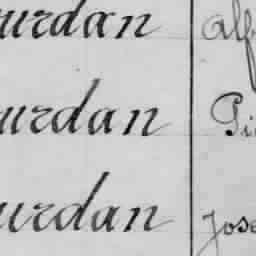 urdan Alf
urdan Pi
urdan Jose